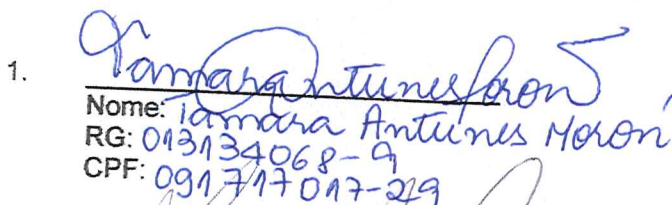 1. Tamara Antunes Moron
Nome: Tamara Antunes Moron
RG: 013134068-9
CPF: 091717017-29